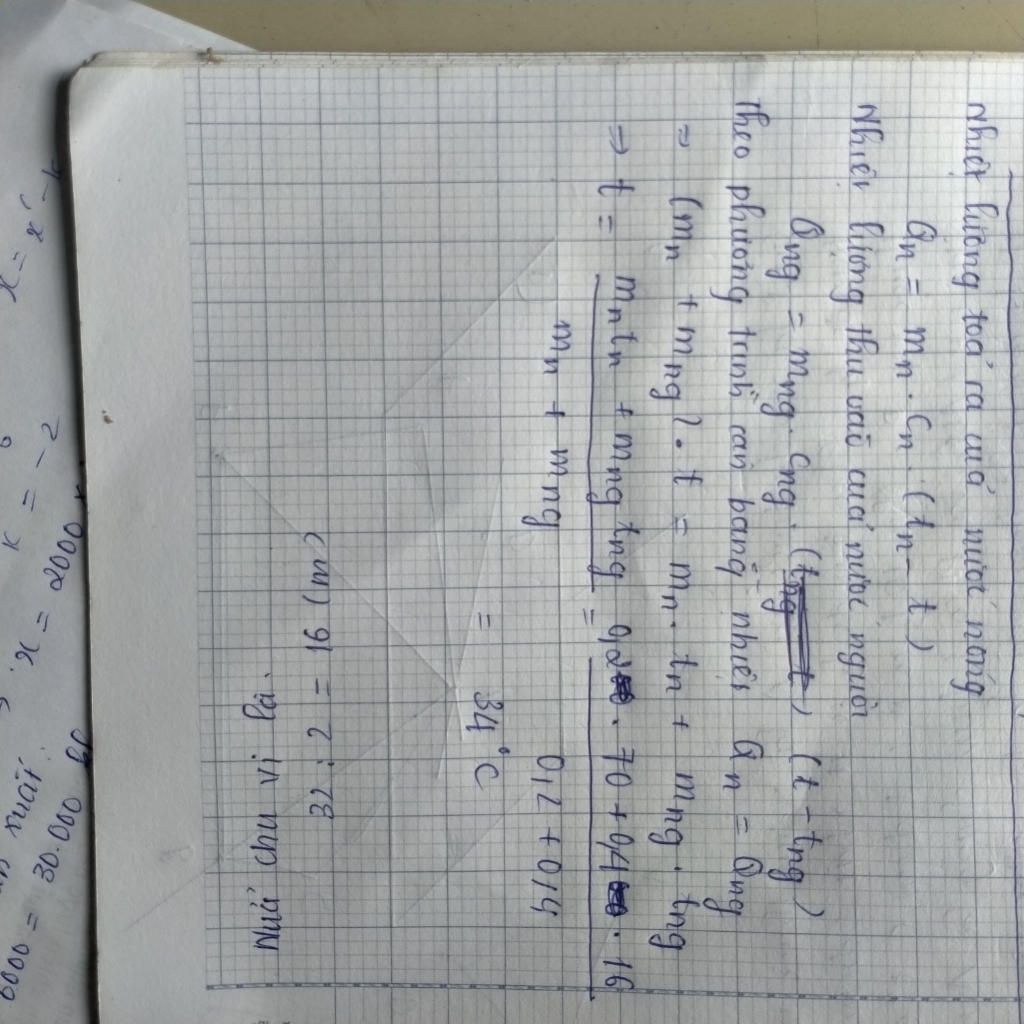 Nhiệt lường toả ra cuả nước nóng
Qn = mn . Cn . (tn - t)
Nhiệt lượng thu vaò cuả nước nguôị
Qng = mng . Cng . (t - tng)
theo phương trình cân bằng nhiệt Qn = Qng
⇒ (mn + mng) . t = mn . tn + mng . tng
⇒ t = mntn + mngtng = 0,2 . 70 + 0,4 . 16
mn + mng 0,2 + 0,4
= 34°C
Nửả chu vi là.
32 : 2 = 16 (m)
K = - 2
x = 2000
xuất
6000 = 30.000